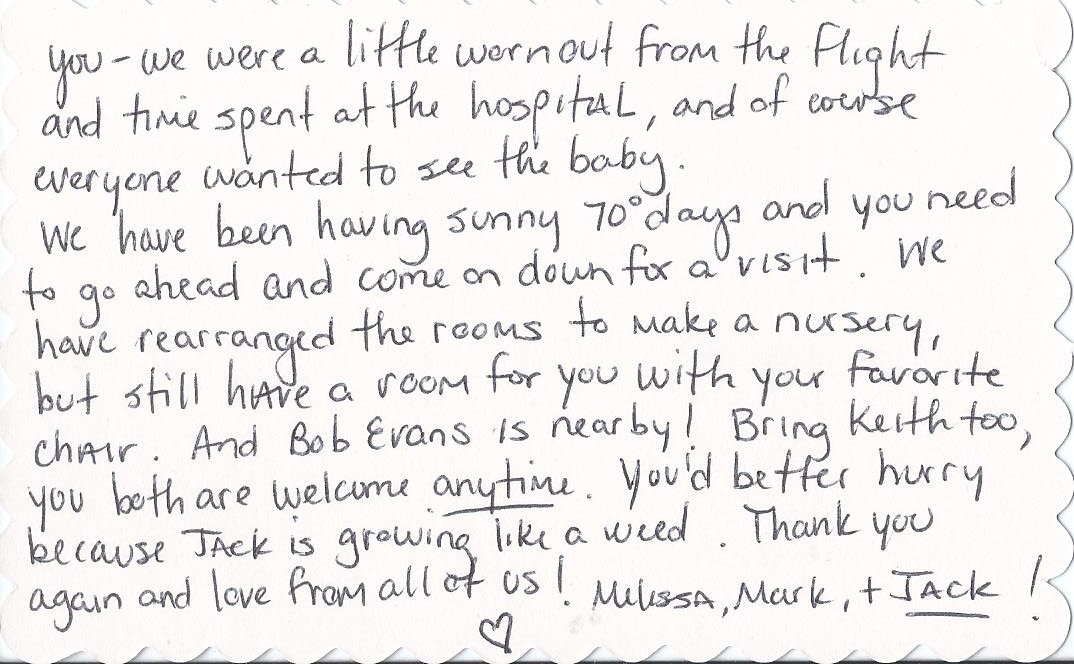 you - we were a little wornout from the flight
and time spent at the hospitAL, and of course
everyone wanted to see the baby.
We have been having sunny 70° days and you need
to go ahead and come on down for a visit. We
have rearranged the rooms to make a nursery,
but still hAve a room for you with your favorite
chAir. And Bob Evans is nearby! Bring Keith too,
you both are welcome anytime. You'd better hurry
because JAck is growing like a weed. Thank you
again and love from all of us! MelissA, Mark, + JAck!
♡